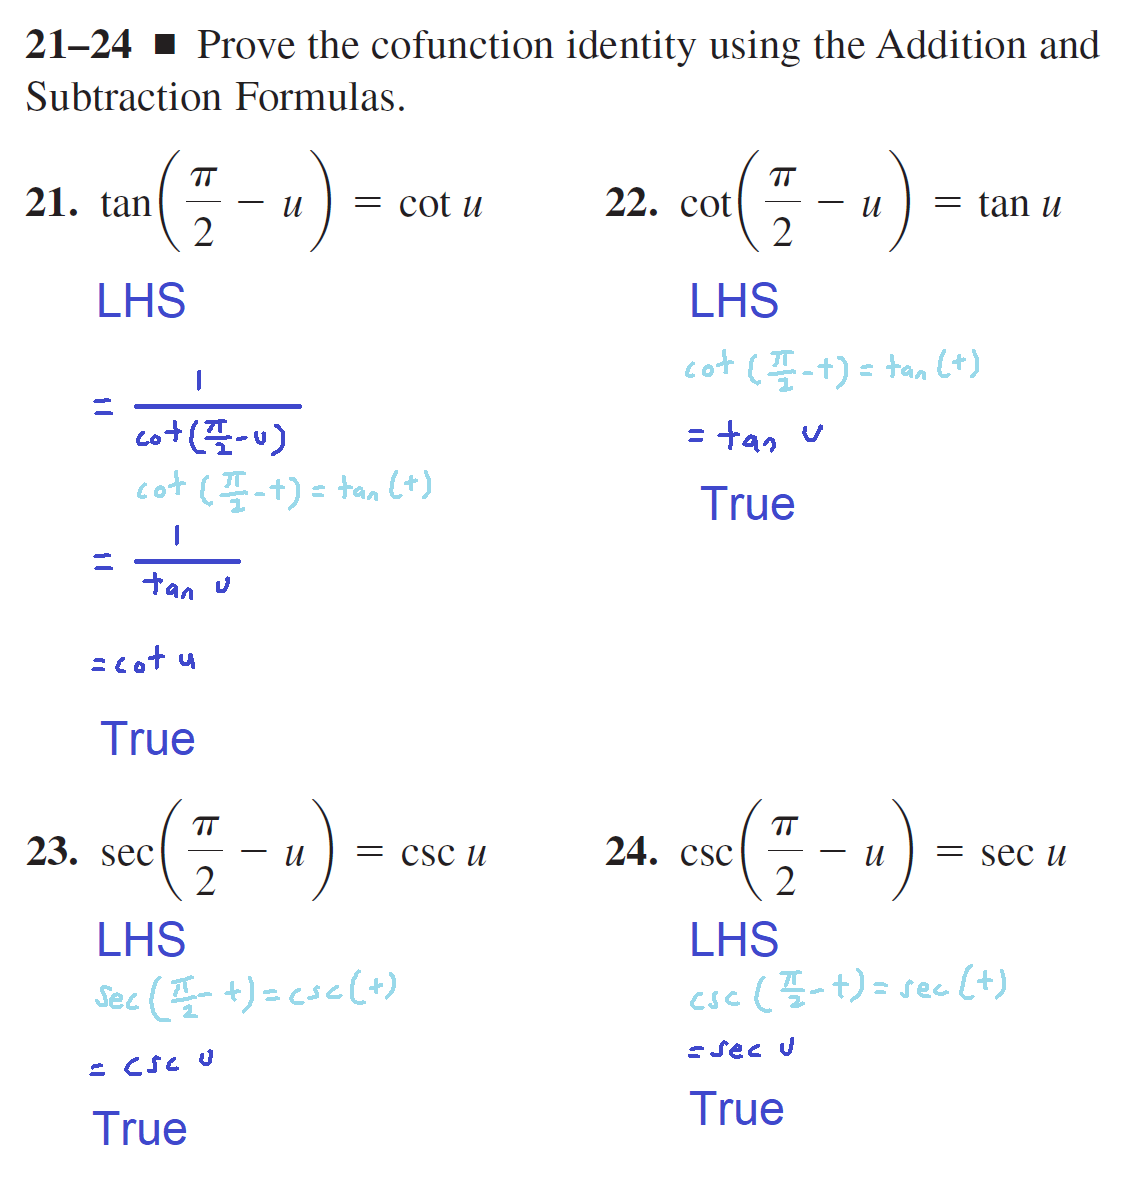 21–24 ■ Prove the cofunction identity using the Addition and
Subtraction Formulas.
21. tan(π/2 − u) = cot u
LHS
= 1/cot(π/2-u)
cot(π/2-t) = tan(t)
= 1/tan u
= cot u
True
22. cot(π/2 − u) = tan u
LHS
cot(π/2-t) = tan(t)
= tan u
True
23. sec(π/2 − u) = csc u
LHS
sec(π/2-t) = csc(t)
= csc u
True
24. csc(π/2 − u) = sec u
LHS
csc(π/2-t) = sec(t)
= sec u
True